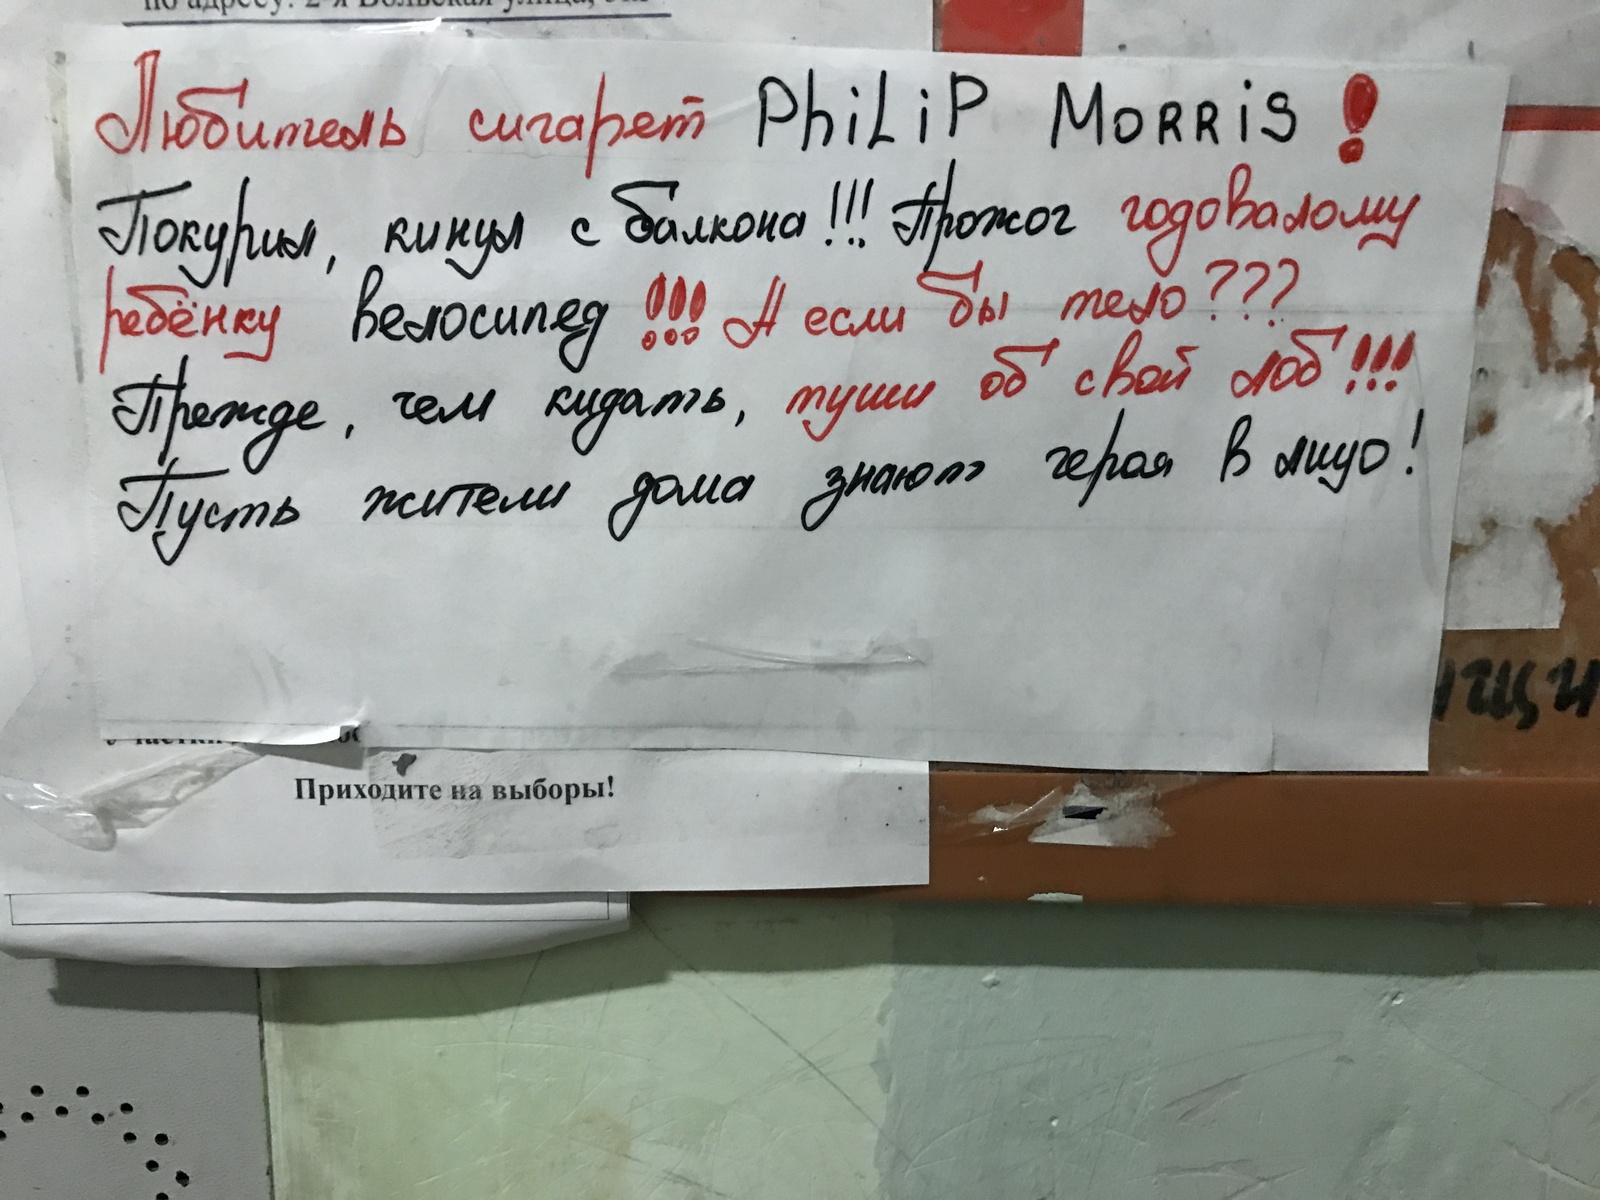 по адресу: 2-я Вольская улица,
Любитель сигарет PhiLiP MORRiS!
Покурил, кинул с балкона!!! Прожог годовалому
ребёнку велосипед!!! А если бы тело???
Прежде, чем кидать, туши об свой лоб!!!
Пусть жители дома знают героя в лицо!
Приходите на выборы!